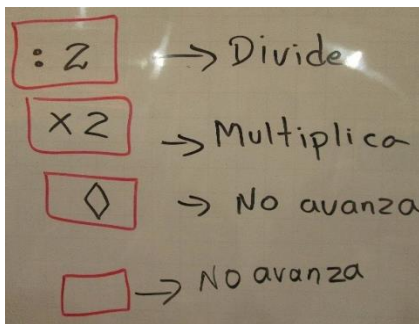 : 2 → Divide
x 2 → Multiplica
◊ → No avanza
→ No avanza